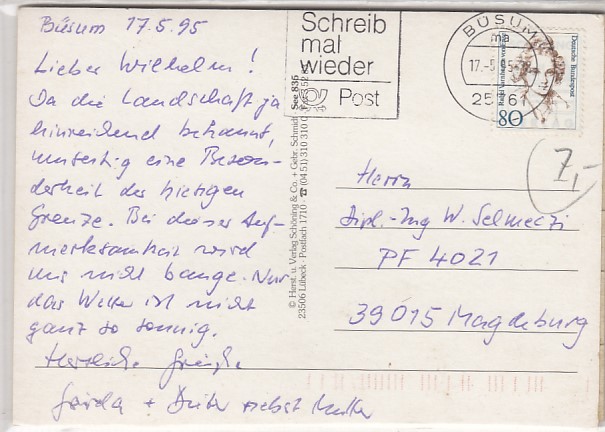 Büsum 17.5.95
Lieber Wilhelm!
Da die Landschaft ja
hinreichend bekannt,
umseitig eine Beson-
derheit der hiesigen
Grenze. Bei dieser Auf-
merksamkeit wird
uns nicht bange. Nur
das Wetter ist nicht
ganz so sonnig.
Herzliche Grüße
Gerda + Dieter nebst Mutter
Schreib
mal
wieder
Post
BÜSUM
ma
17.-5.
Deutsche Bundespost
80
© Herst. u. Verlag Schöning & Co. + Gebr. Schmidt
23506 Lübeck · Postfach 1710 · ☎ (0451) 310 310
See 835
7,-
Herrn
Dipl.-Ing W. Selmeczi
PF 4021
39015 Magdeburg